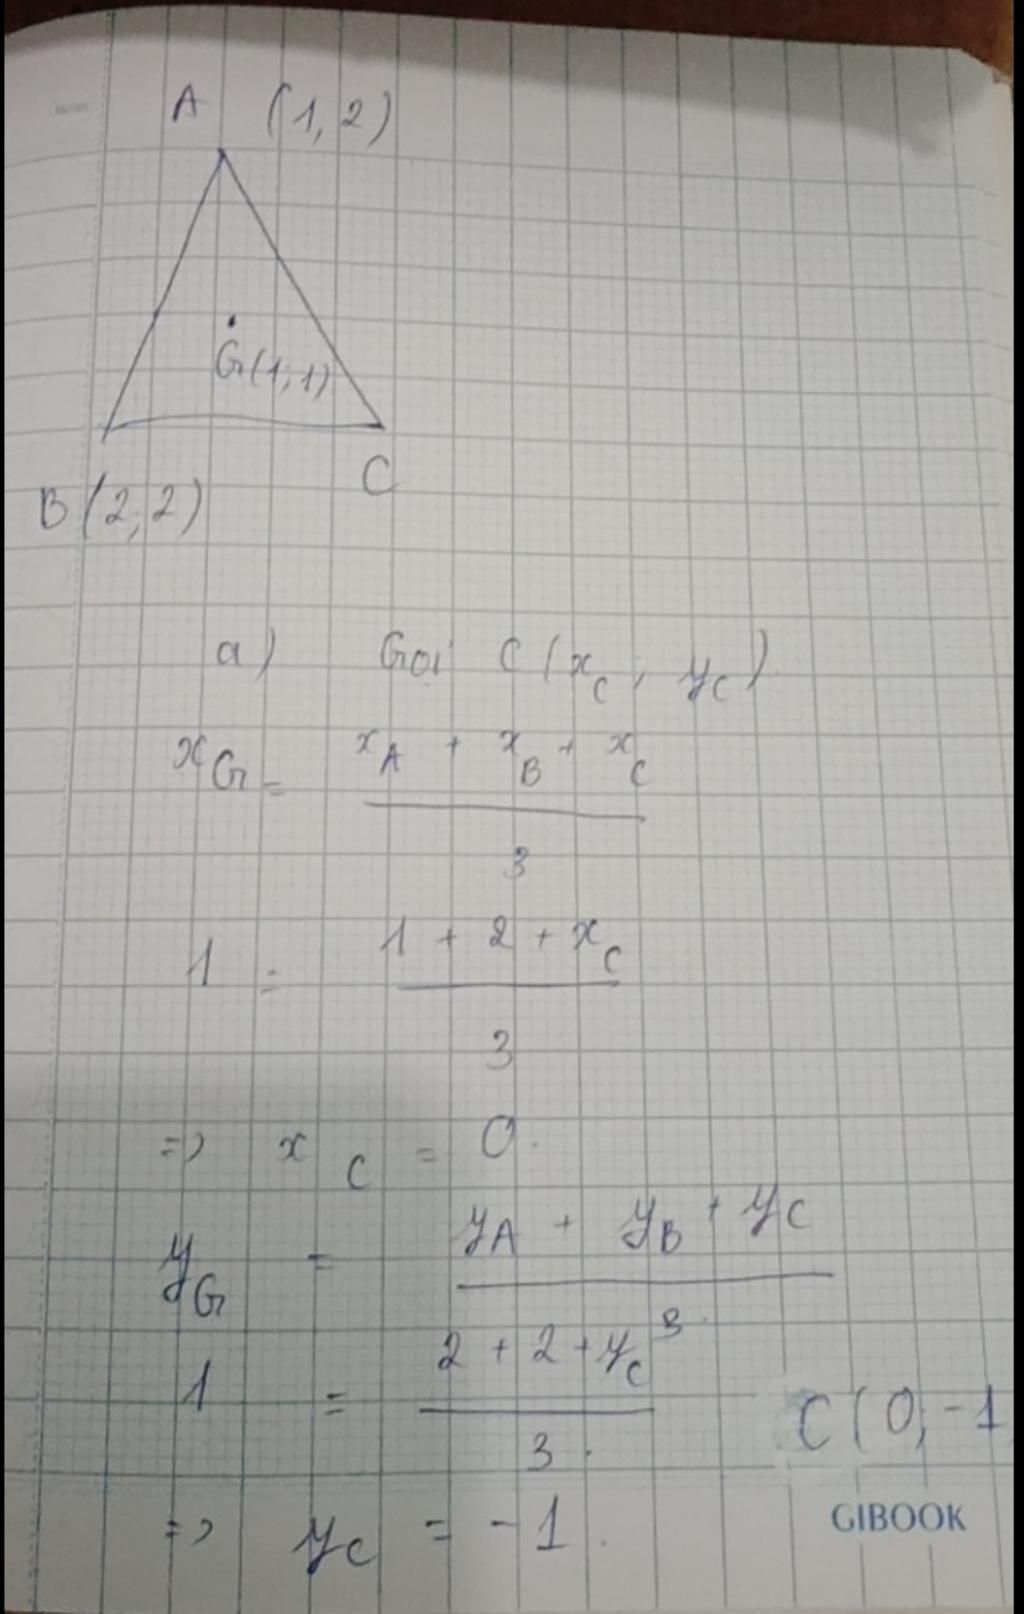 A (1, 2)
G(1,1)
C
B(2; 2)
a) Gọi C(x_C; y_C)
x_G = x_A + x_B + x_C
3
1 = 1 + 2 + x_C
3
=> x_C = 0.
y_G = y_A + y_B + y_C
3.
1 = 2 + 2 + y_C
3.
C(0; -1
=> y_C = -1.
GIBOOK